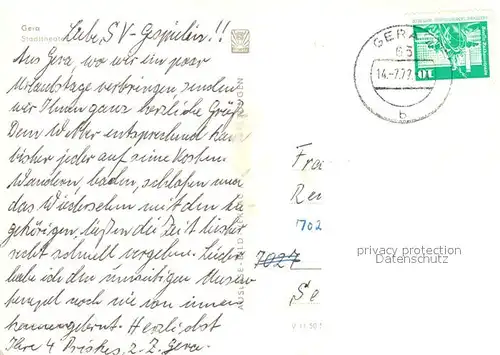 Gera
Stadttheater
Liebe SV-Gespielin!!
Aus Gera, wo wir ein paar
Urlaubstage verbringen senden
wir Ihnen ganz herzliche Grüße
Dem Wetter entsprechend kam
bisher jeder auf seine Kosten.
Wandern, baden, schlafen und
das Wiedersehn mit den An
gehörigen, ließen die Zeit bisher
recht schnell vergehen. Leider
habe ich den
noch nie von innen
kennengelernt. Herzlichst
Ihre 4 z. Z. Gera.
GERA
65
14.-7.77
b
10
Fra
Rei
702
7027
privacy protection
DanielC.M.
V 11 50